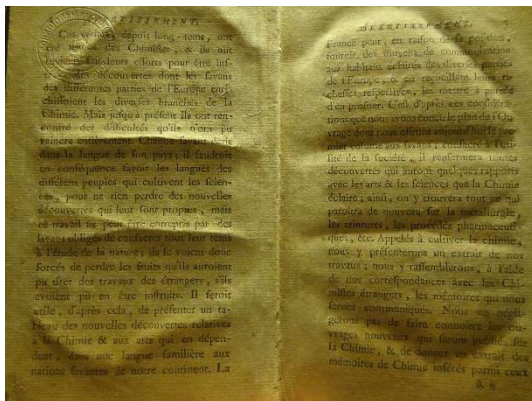 AVERTISSEMENT.
Ces vérités, depuis long-tems, ont
été senties des Chimistes, & ils ont
plusieurs efforts pour être
des découvertes dont les savans
des différentes parties de l'Europe
enrichissoient les diverses branches de la
Chimie. Mais jusqu'à présent ils ont ren-
contré des difficultés qu'ils n'ont pu
vaincre entièrement. Chaque savant écrit
dans la langue de son pays; il faudroit
en conséquence savoir les langues des
différens peuples qui cultivent les scien-
ces, pour ne rien perdre des nouvelles
découvertes qui leur sont propres, mais
ce travail ne peut être entrepris par des
savans obligés de consacrer tout leur tems
à l'étude de la nature; ils se voient donc
forcés de perdre les fruits qu'ils auroient
pu tirer des travaux des étrangers, s'ils
avoient pu en être instruits. Il seroit
utile, d'après cela, de présenter un ta-
bleau des nouvelles découvertes relatives
à la Chimie & aux arts qui en dépen-
dent, dans une langue familière aux
nations savantes de notre continent. La
AVERTISSEMENT.
France peut, en raison de sa position,
fournir des moyens de communication
aux habitans éclairés des diverses parties
de l'Europe, & en recueillant leurs ri-
chesses respectives, les mettre à portée
d'en profiter. C'est d'après ces considéra-
tions que nous avons conçu le plan de l'Ou-
vrage dont nous offrons aujourd'hui le pre-
mier volume aux savans; consacré à l'uti-
lité de la société, il renfermera toutes
découvertes qui auront quelques rapports
avec les arts & les sciences que la Chimie
éclaire; ainsi, on y trouvera tout ce qui
paroîtra de nouveau sur la métallurgie,
les teintures, les procédés pharmaceuti-
ques, &c. Appelés à cultiver la chimie,
nous y présenterons un extrait de nos
travaux; nous y rassemblerons, à l'aide
de nos correspondances avec les Chi-
mistes étrangers, les mémoires qui nous
seront communiqués. Nous ne négli-
gerons pas de faire connoître les ou-
vrages nouveaux qui seront publiés sur
la Chimie, & de donner un extrait des
mémoires de Chimie insérés parmi ceux
a ij